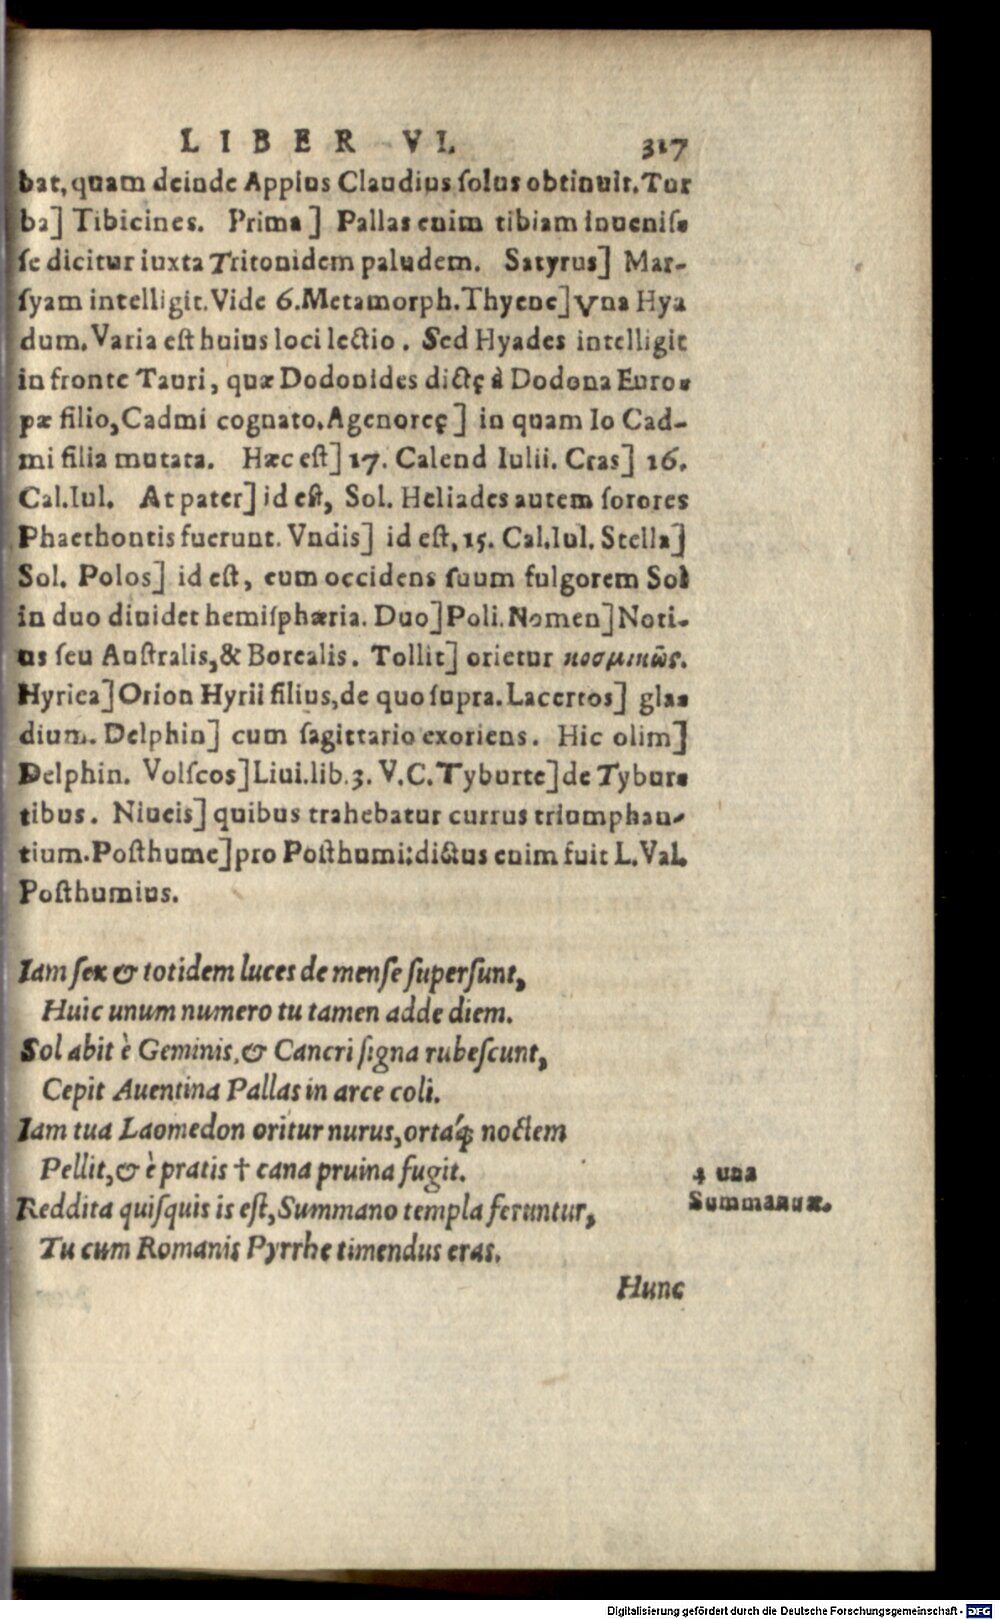 LIBER VI. 317
bat, quam deinde Appius Claudius ſolus obtinuit. Tur
ba] Tibicines. Prima] Pallas enim tibiam inueniſ-
ſe dicitur iuxta Tritonidem paludem. Satyrus] Mar-
ſyam intelligit. Vide 6. Metamorph. Thyene] Vna Hya
dum. Varia eſt huius loci lectio. Sed Hyades intelligit
in fronte Tauri, quæ Dodonides dictę à Dodona Euro-
pæ filio, Cadmi cognato. Agenoreę] in quam Io Cad-
mi filia mutata. Hæc eſt] 17. Calend Iulii. Cras] 16.
Cal. Iul. At pater] id eſt, Sol. Heliades autem ſorores
Phaethontis fuerunt. Vndis] id eſt, 15. Cal. Iul. Stella]
Sol. Polos] id eſt, cum occidens ſuum fulgorem Sol
in duo diuidet hemiſphæria. Duo] Poli. Nomen] Noti-
us ſeu Auſtralis, & Borealis. Tollit] orietur κοσμικῶς.
Hyriea] Orion Hyrii filius, de quo ſupra. Lacertos] gla-
dium. Delphin] cum ſagittario exoriens. Hic olim]
Delphin. Volſcos] Liui. lib. 3. V.C. Tyburte] de Tybur-
tibus. Niueis] quibus trahebatur currus triumphan-
tium. Poſthume] pro Poſthumi: dictus enim fuit L. Val.
Poſthumius.
Iam ſex & totidem luces de menſe ſuperſunt,
Huic unum numero tu tamen adde diem.
Sol abit è Geminis, & Cancri ſigna rubeſcunt,
Cepit Auentina Pallas in arce coli.
Iam tua Laomedon oritur nurus, ortaq́; noctem
Pellit, & è pratis † cana pruina fugit.
4 una
Reddita quiſquis is eſt, Summano templa feruntur,
Summanux.
Tu cum Romanis Pyrrhe timendus eras.
Hunc
Digitalisierung gefördert durch die Deutsche Forschungsgemeinschaft - DFG